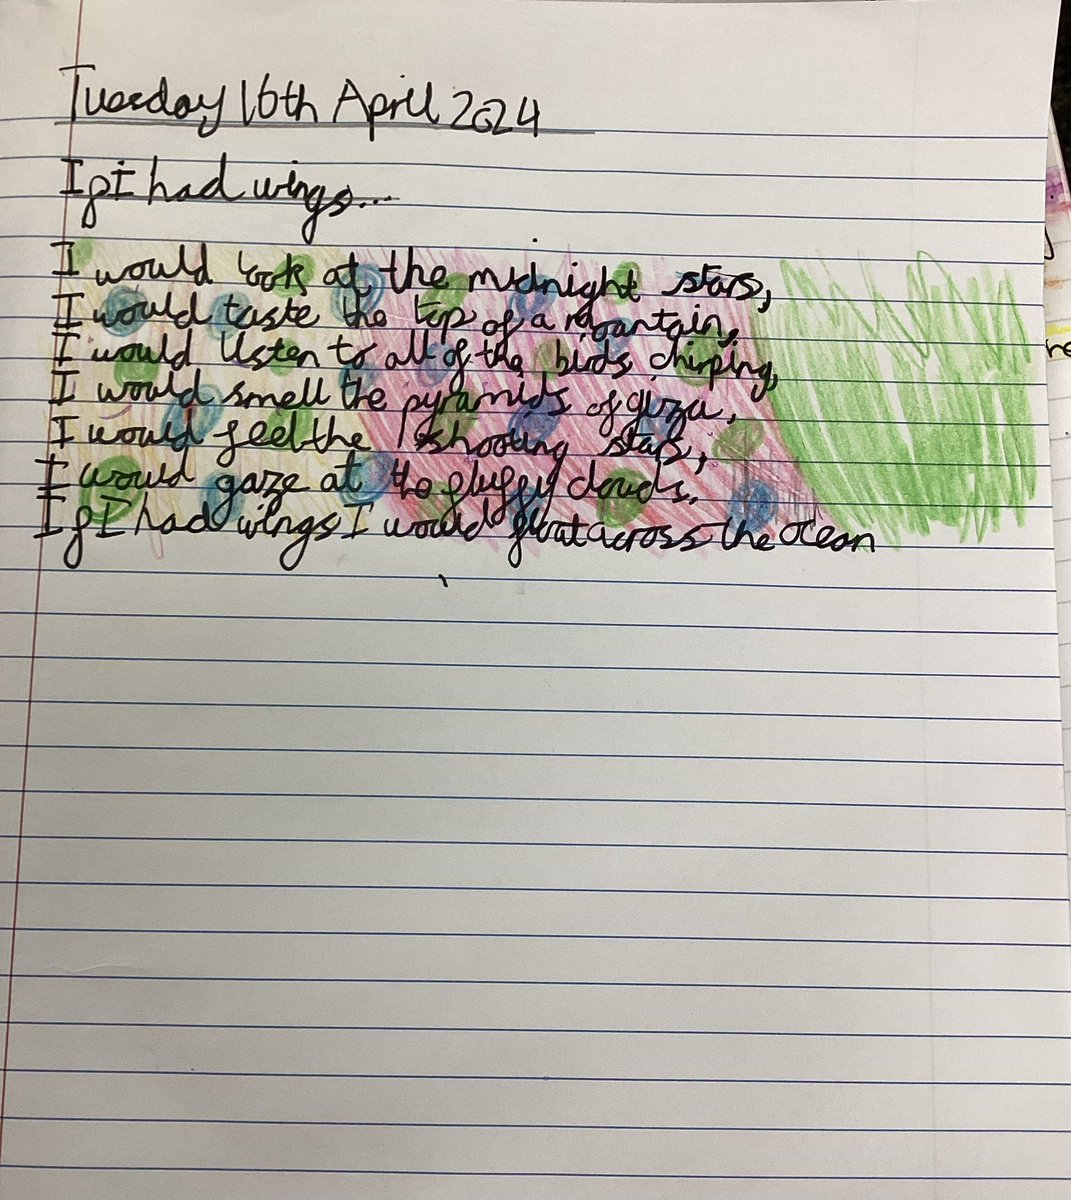 Tuesday 16th April 2024
If I had wings...
I would look at the midnight stars,
I would taste the top of a mountain,
I would listen to all of the birds chirping,
I would smell the pyramids of giza,
I would feel the shooting stars,
I would gaze at the fluffy clouds.
If I had wings I would float across the ocean